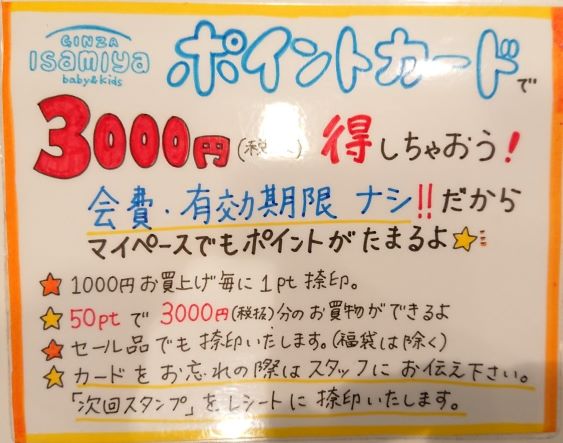 GINZA
Isamiya
baby&kids
ポイントカードで
3000円(税 ) 得しちゃおう!
会費・有効期限 ナシ!!だから
マイペースでもポイントがたまるよ
1000円お買上げ毎に1pt捺印。
50ptで3000円(税抜)分のお買物ができるよ
セール品でも捺印いたします。(福袋は除く)
カードをお忘れの際はスタッフにお伝え下さい。
「次回スタンプ」をレシートに捺印いたします。